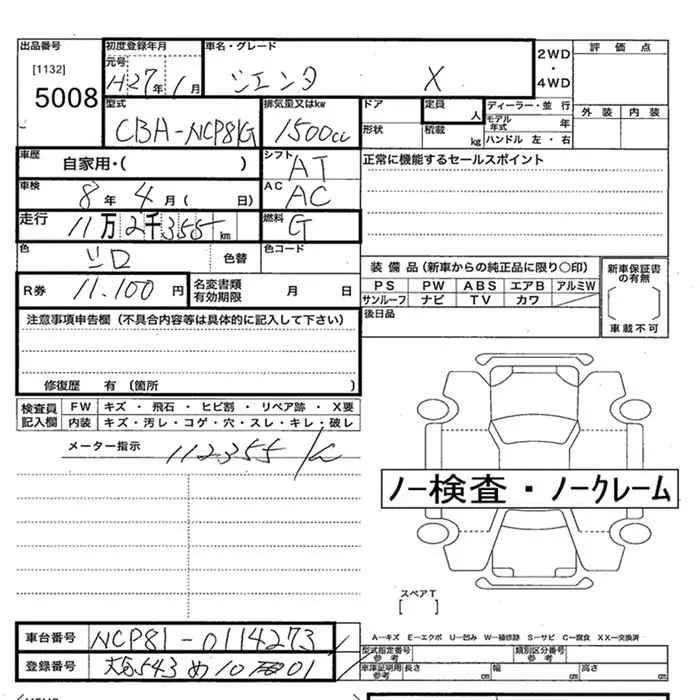 出品番号 初度登録年月 車名・グレード 2WD・4WD 評価点
[1132] 元号 H27年 1月 シエンタ X
5008 型式 排気量又はkw ドア 定員 人 ディーラー・並行 外装 内装
CBA-NCP81G 1500cc 形状 積載 kg モデル年式 年
ハンドル 左・右
車歴 自家用・( ) シフト AT 正常に機能するセールスポイント
車検 8年 4月( 日) AC AC
走行 11万2千355km 燃料 G
色 シロ 色替 色コード
R券 11.100円 名変書類有効期限 月 日 装備品(新車からの純正品に限り○印) 新車保証書の有無
PS PW ABS エアB アルミW
サンルーフ ナビ TV カワ
注意事項申告欄(不具合内容等は具体的に記入して下さい) 後日品 車載不可
修復歴 有(箇所 )
検査員記入欄 FW キズ・飛石・ヒビ割・リペア跡・X要
内装 キズ・汚レ・コゲ・穴・スレ・キレ・破レ
メーター指示 112355
ノー検査・ノークレーム
スペアT
[ ]
車台番号 NCP81-0114273
A―キズ E―エクボ U―凹み W―補修跡 S―サビ C―腐食 XX―交換済
型式指定番号 参考 類別区分番号 参考
登録番号 543 め 10 01 車庫証明用参考 長さ cm 幅 cm 高さ cm